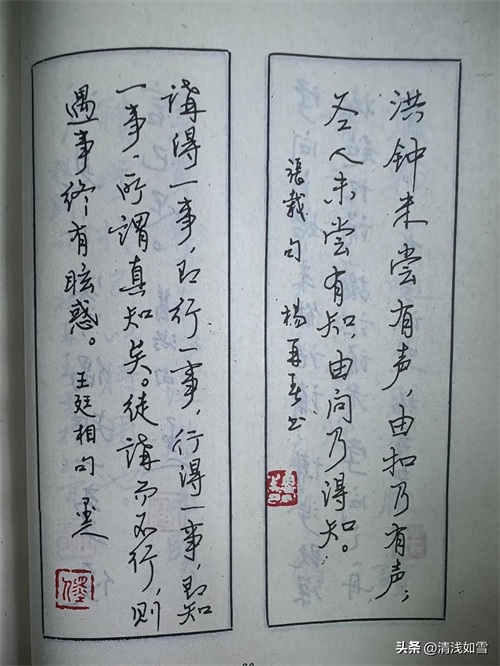 洪钟未尝有声，由扣乃有声；
圣人未尝有知，由问乃得知。
張載句 杨再春书
講得一事，即行一事，行得一事，即知
一事，所謂真知矣。徒講而不行，则
遇事终有眩惑。王廷相句
头条 @清浅如雪